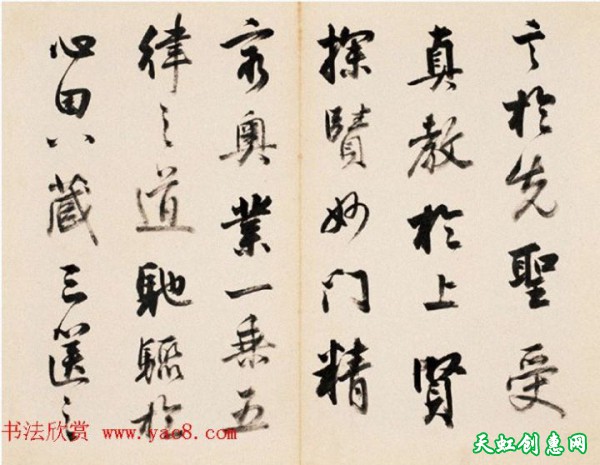 言於先聖受
真教於上賢
探賾妙門精
窮奥業一乘五
律之道馳驟於
心田八藏三篋之
书法欣赏 www.yac8.com
天虹创惠网